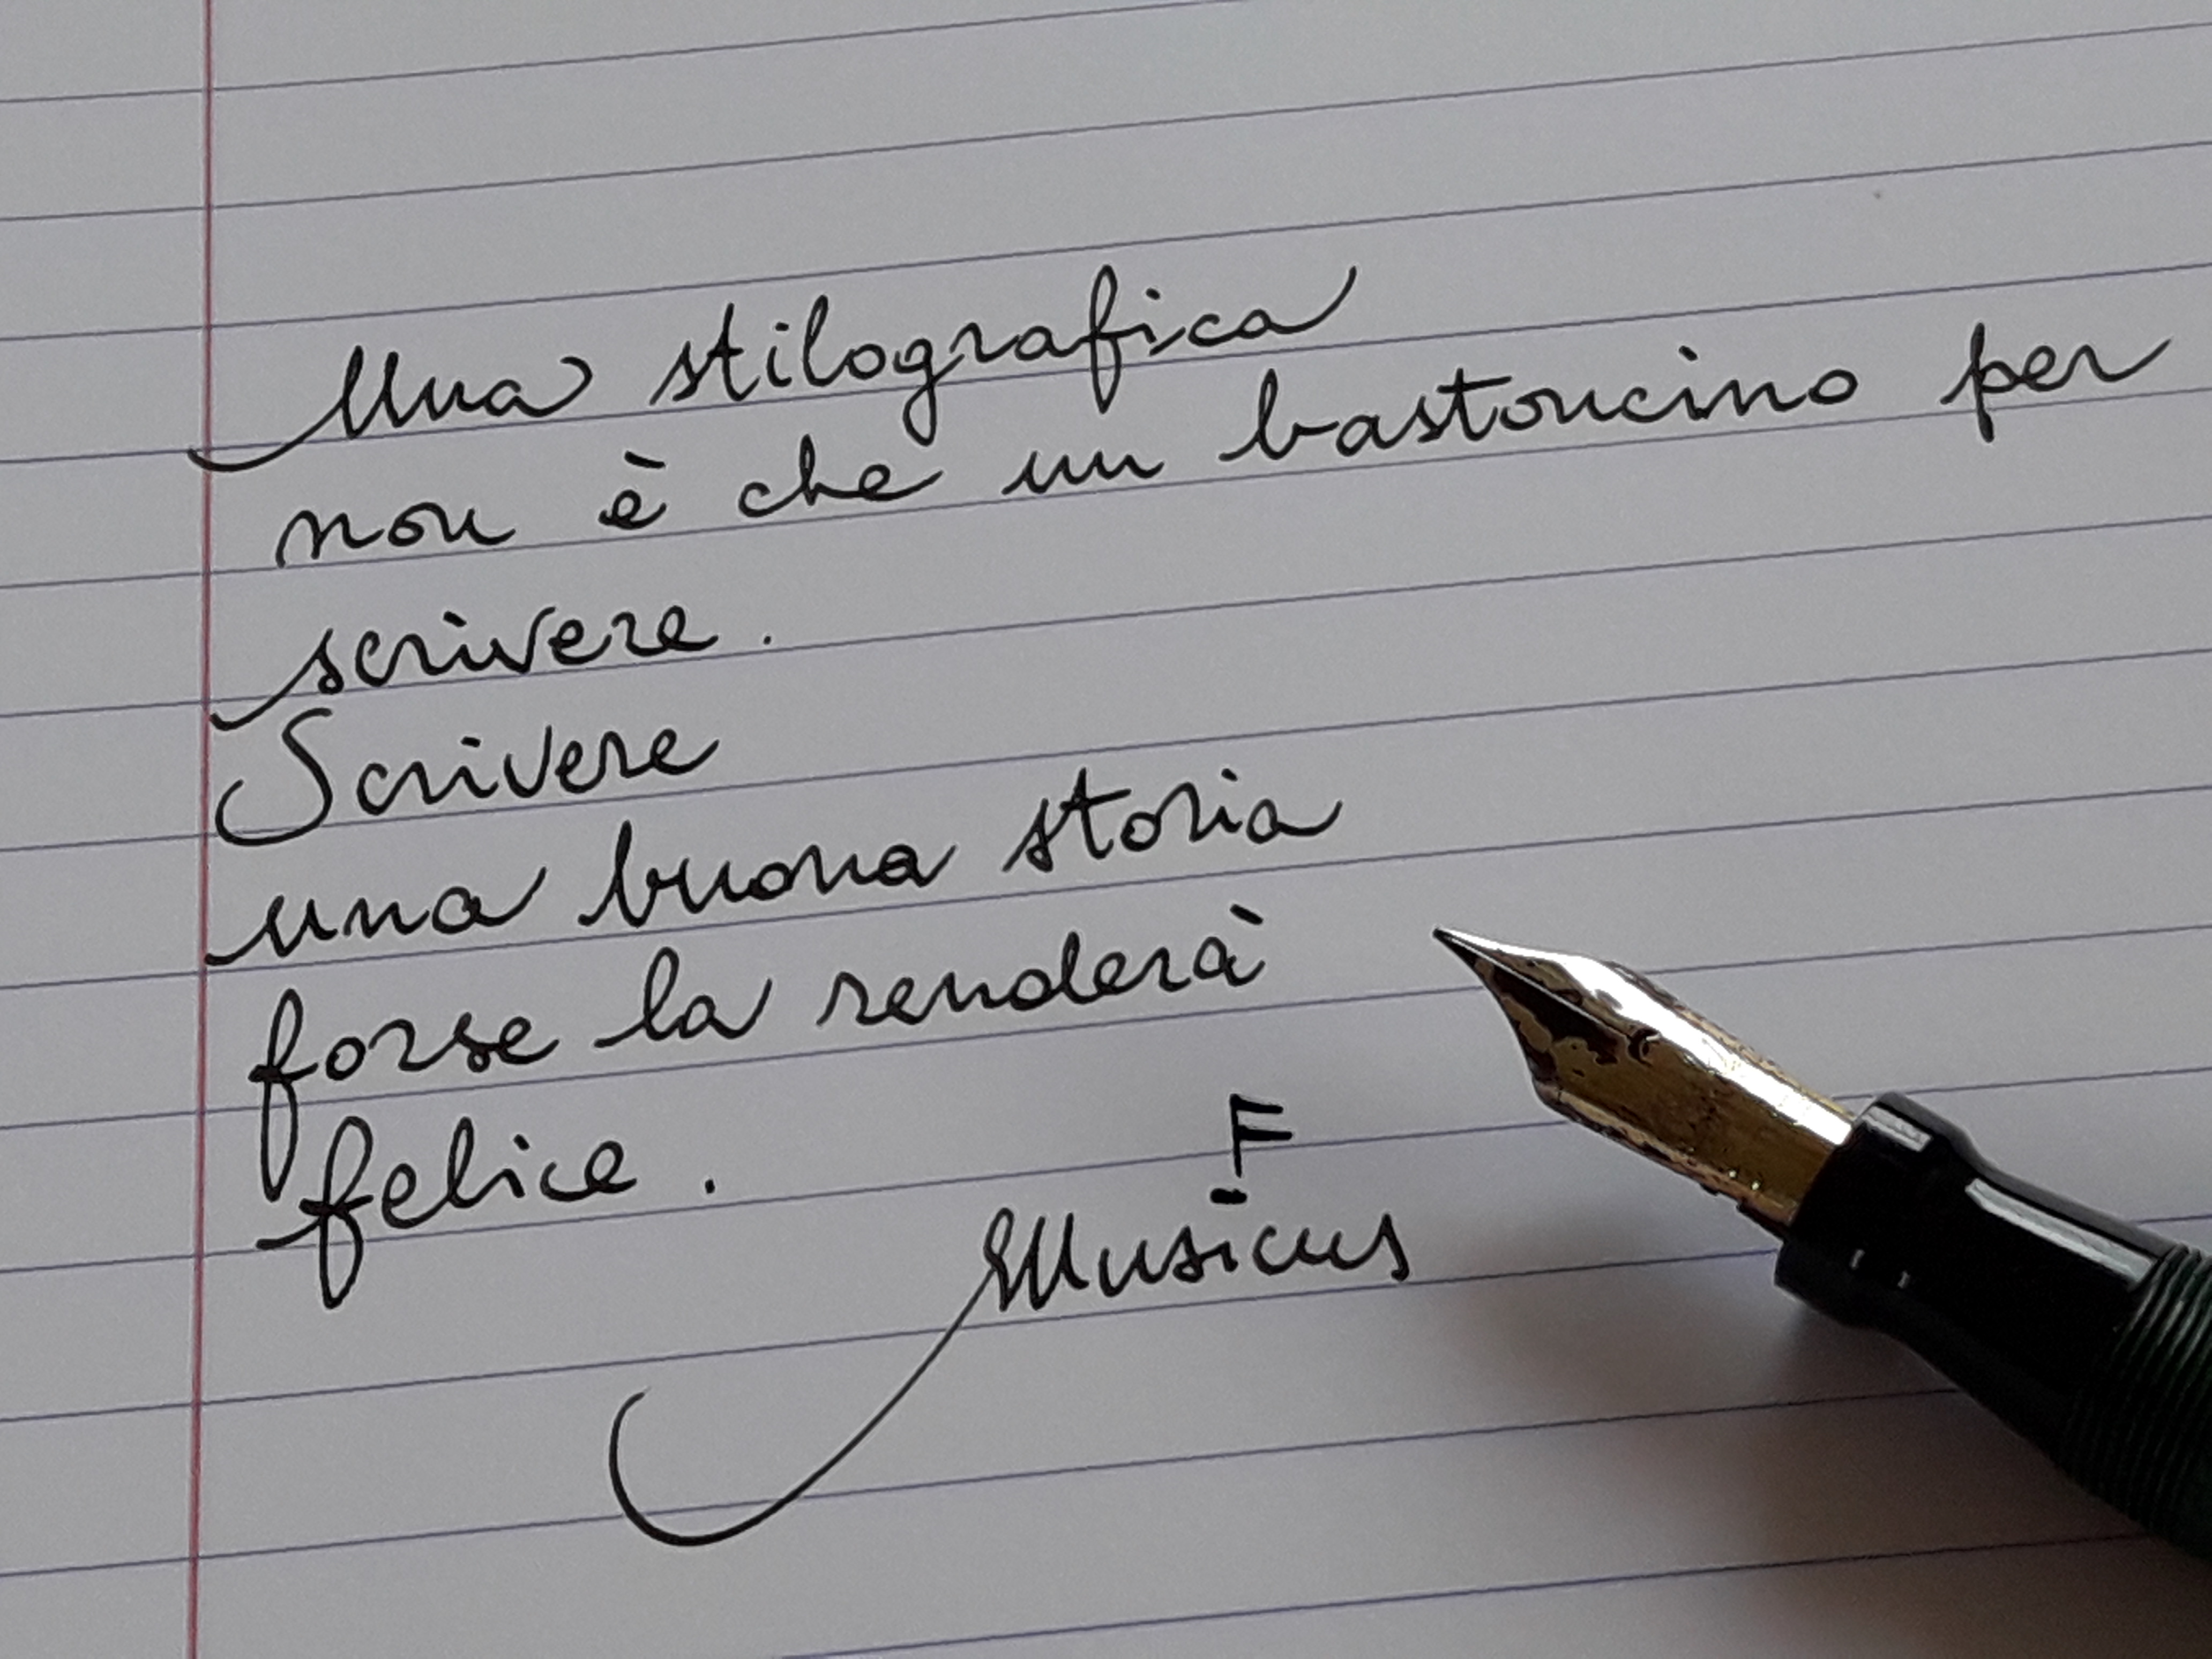 Una stilografica
non è che un bastoncino per
scrivere.
Scrivere
una buona storia
forse la renderà
felice.
F
Musicus